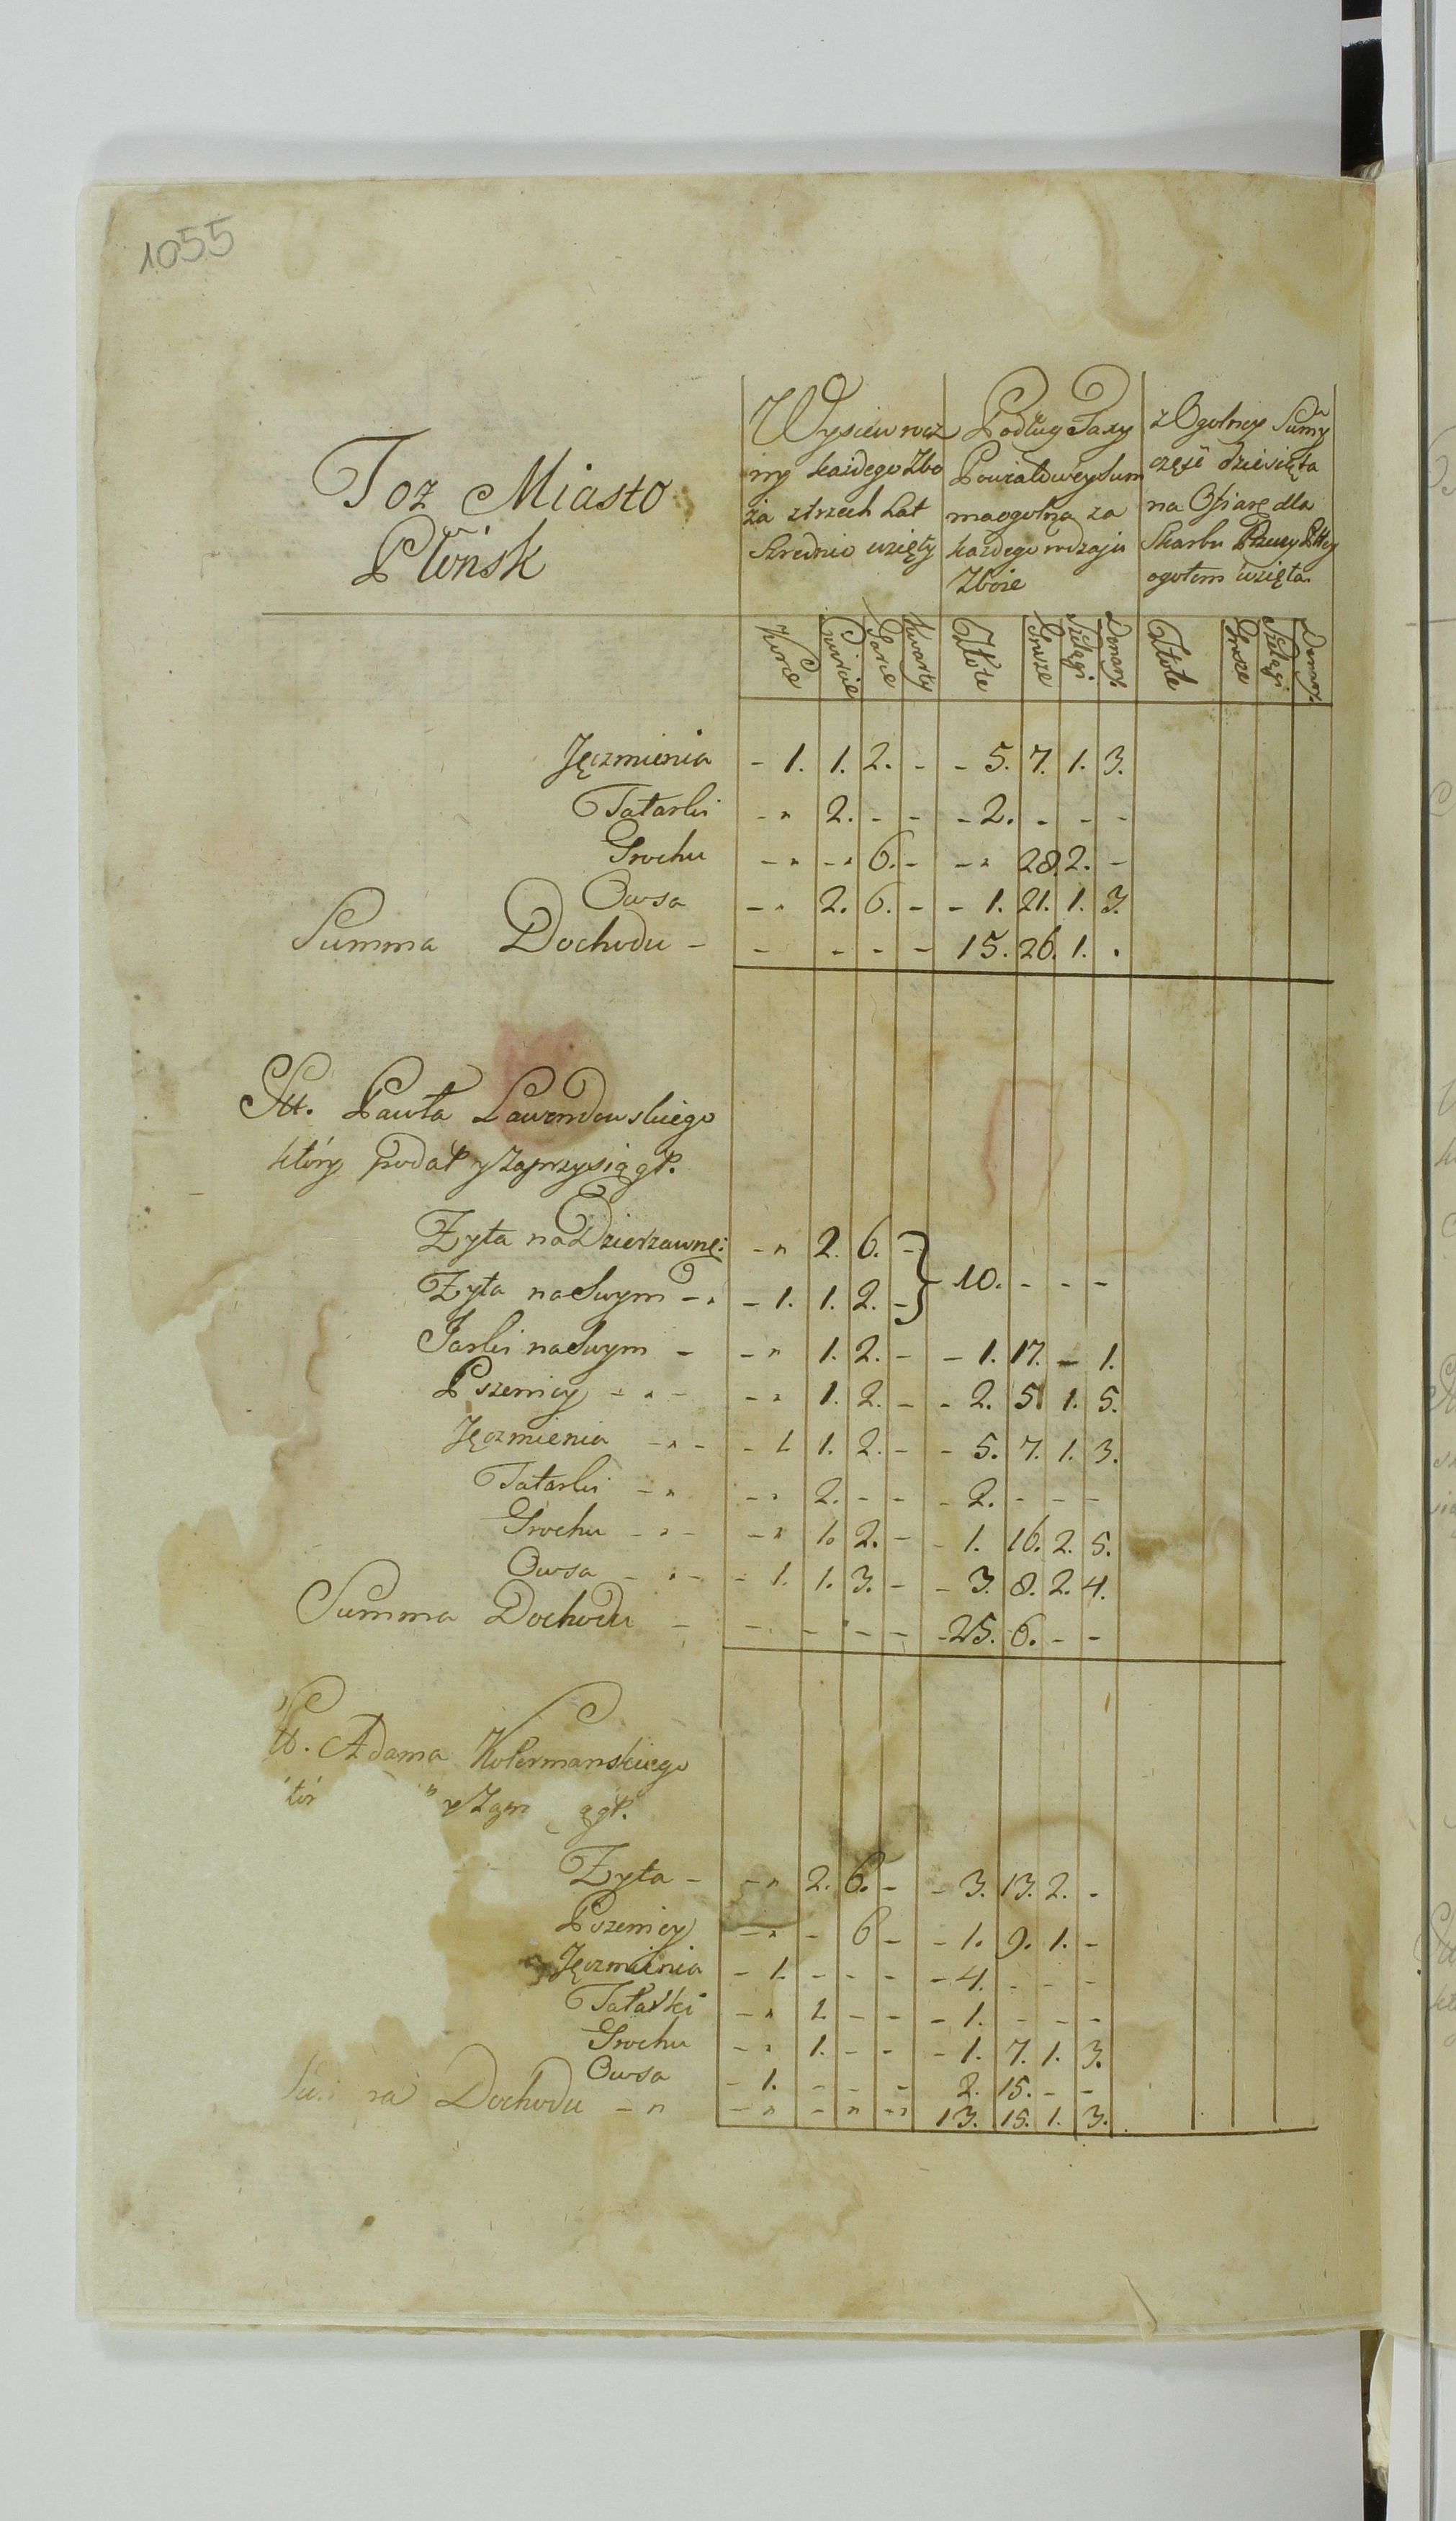 1055
Toż Miasto
Płońsk
Wysiew rocz
ny każdego Zbo
ża z trzech Lat
Srednio wzięty
Podług Taxy
Powiatowey Sum
ma ogolną za
każdego rodzaju
Zboże
z Ogolney Sumy
część dziesięta
na Ofiarę dla
Skarbu Rzeczy Pttey
ogołem wzięta.
Korce Cwircie Garce Kwarty Złote Grosze Szelągi Denary. Złote Grosze Szelągi Denary.
Jęczmienia - 1. 1. 2. - - 5. 7. 1. 3.
Tatarki - " 2. - - - 2. - - -
Grochu - " - " 6. - - " 28. 2. -
Owsa - " 2. 6. - - 1. 21. 1. 3.
Summa Dochodu - - - - - 15. 26. 1. .
Pawła Lawendowskiego
który podał y zaprzysiągł.
Zyta na Dzierzawne: - " 2. 6. -
Zyta na Swym - " - 1. 1. 2. - } 10. - - -
Jarki na Swym - - " 1. 2. - - 1. 17. - 1.
Pszenicy - " - - " 1. 2. - - 2. 5. 1. 5.
Jęczmienia - " - - 1. 1. 2. - - 5. 7. 1. 3.
Tatarki - " - " 2. - - - 2. - - -
Grochu - " - - " 1. 2. - - 1. 16. 2. 5.
Owsa - " - - 1. 1. 3. - - 3. 8. 2. 4.
Summa Dochodu - - - - - - 25. 6. - -
Adama Kołermanskiego
y Zaprz ągł.
Zyta - - " 2. 6. - - 3. 13. 2. -
Pszenicy - " - 6 - - 1. 9. 1. -
Jęczmienia - 1. - - - - 4. - - -
Tatarki - " 1. - - - 1. - - -
Grochu - " 1. - - - 1. 7. 1. 3.
Owsa - 1. - - - 2. 15. - -
Su ma Dochodu - " - " - " - " 13. 15. 1. 3.